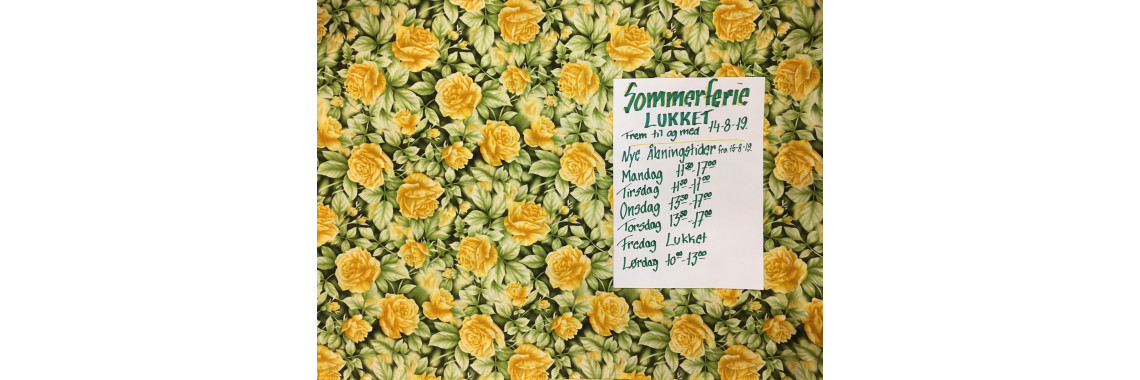 Sommerferie
LUKKET
Frem til og med 14-8-19.
Nye Åbningstider fra 15-8-19.
Mandag 11³⁰-17⁰⁰
Tirsdag 11³⁰-17⁰⁰
Onsdag 13³⁰-17⁰⁰
Torsdag 13³⁰-17⁰⁰
Fredag Lukket
Lørdag 10⁰⁰-13⁰⁰